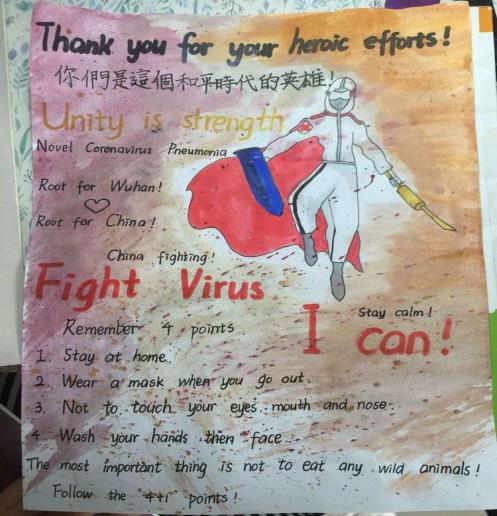 Thank you for your heroic efforts!
你們是這個和平時代的英雄!
Unity is strength
Novel Coronavirus Pneumonia
Root for Wuhan!
Root for China!
China fighting!
Fight Virus
Stay calm!
I can!
Remember 4 points
1. Stay at home.
2. Wear a mask when you go out.
3. Not to touch your eyes. mouth and nose.
4. Wash your hands then face.
The most important thing is not to eat any wild animals!
Follow the 4+1 points!